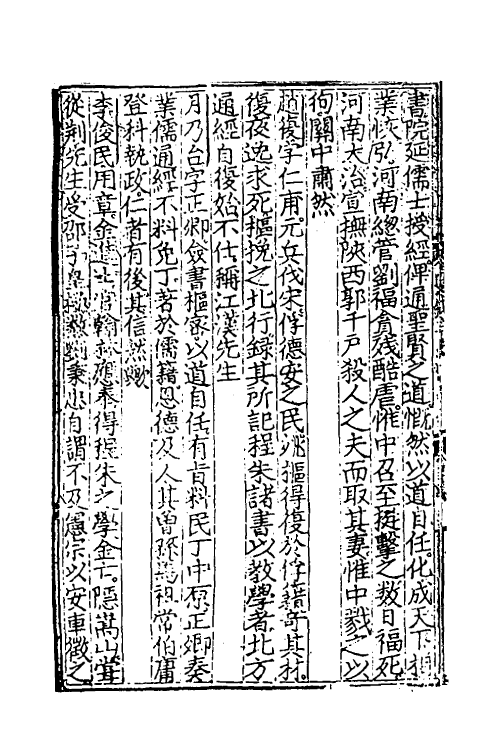 書院延儒士授經俾通聖賢之道慨然以道自任化成天下相
業恢弘河南總管劉福貪殘酷虐惟中召至搥擊之数日福死
河南大治宣撫陜西郭千戶殺人之夫而取其妻惟中戮之以
徇關中肅然
趙復字仁甫元兵伐宋俘德安之民姚樞得復於俘籍奇其材
復夜逸求死樞挽之北行録其所記程朱諸書以教學者北方
通經自復始不仕稱江漢先生
月乃合字正卿僉書樞密以道自任有旨料民丁中原正卿奏
業儒通經不料免丁著於儒籍恩德及人其曾孫馬祖常伯庸
登科執政仁者有後其信然歟
李俊民用章金進士官翰林應奉得程朱之學金亡隱嵩山
從荆先生受邵子皇極数劉秉忠自謂不及憲宗以安車徵之